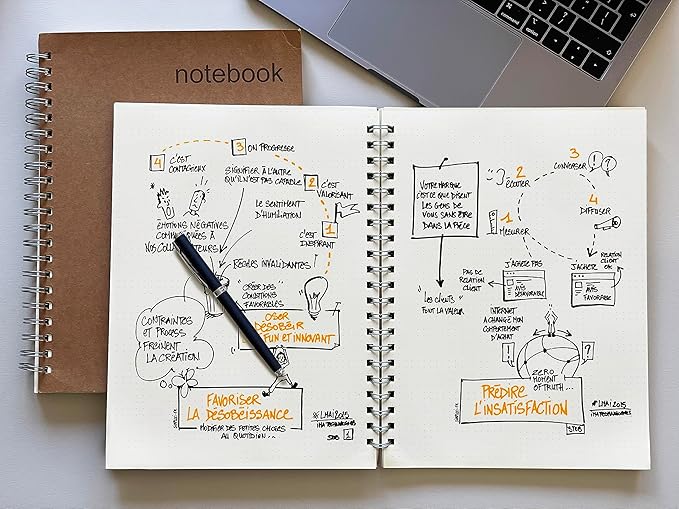 notebook
4
C'EST
CONTAGIEUX
3
ON PROGRESSE
SIGNIFIER À L'AUTRE
QU'IL N'EST PAS CAPABLE
2
C'EST
VALORISANT
LE SENTIMENT
D'HUMILIATION
1
C'EST
INSPIRANT
ÉMOTIONS NÉGATIVES
À
NOS
RÈGLES INVALIDANTES
"CRÉER DES
CONDITIONS
FAVORABLES"
OSER
DÉSOBÉIR
FUN ET INNOVANT
CONTRAINTES
ET PROCESS
FREINENT
LA CRÉATION
FAVORISER
LA DÉSOBÉISSANCE
MODIFIER DES PETITES CHOSES
AU QUOTIDIEN...
#LMAI2015
IMA TECHNOLOGIES
STDB 1
VOTRE MARQUE
C'EST CE QUE DISENT
LES GENS DE
VOUS SANS ÊTRE
DANS LA PIÈCE
"LES CLIENTS"
FONT LA VALEUR
2
ÉCOUTER
3
CONVERSER
! ?
1
MESURER
4
DIFFUSER
J'ACHÈTE PAS
PAS DE
RELATION
CLIENT
AVIS
DÉFAVORABLE
J'ACHÈTE
RELATION
CLIENT
OK
AVIS
FAVORABLE
INTERNET
A CHANGÉ MON
COMPORTEMENT
D'ACHAT
! ?
ZERO
MOMENT
OF TRUTH...
PRÉDIRE
L'INSATISFACTION
#LMAI2015
IMA TECHNOLOGIES
STDB